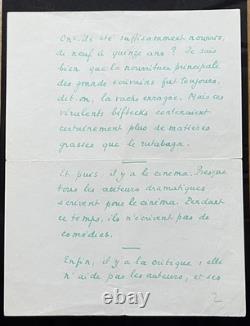 Ont-ils été suffisamment nourris,
de neuf à quinze ans ? Je sais
bien que la nourriture principale
des grands écrivains fut toujours,
dit-on, la vache enragée. Mais ces
virulents biftecks contenaient
certainement plus de matières
grasses que le rutabaga.
Et puis, il y a le cinéma. Presque
tous les auteurs dramatiques
écrivent pour le cinéma. Pendant
ce temps, ils n'écrivent pas de
comédies.
Enfin, il y a la critique ; elle
n'aide pas les auteurs, et ses
2